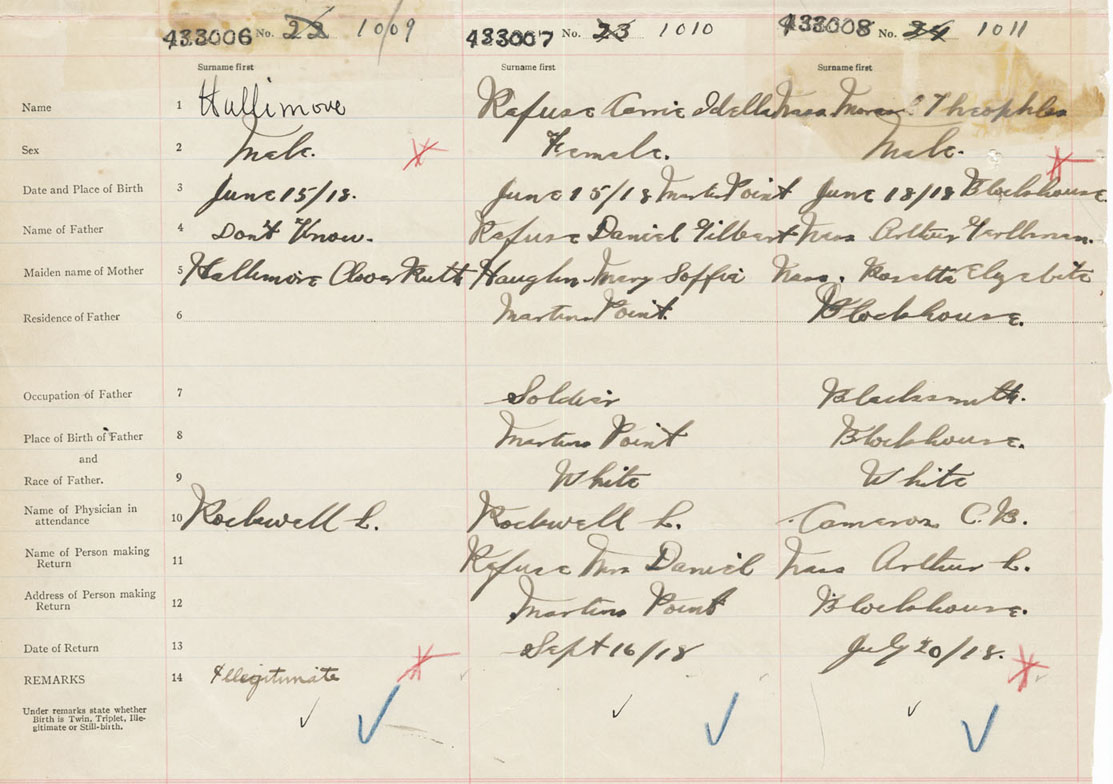 433006 No. 22 1009 433007 No. 23 1010 433008 No. 24 1011
Surname first Surname first Surname first
Name 1 Hallimore Refuse Carrie Idella Naas Theophles
Sex 2 Male. Female. Male.
Date and Place of Birth 3 June 15/18. June 15/18 Martins Point June 18/18 Blockhouse.
Name of Father 4 Don't Know. Refuse Daniel Gilbert Naas Arthur
Maiden name of Mother 5 Hallimore Ruth Haughn Mary Soffie Naas. Rosetta
Residence of Father 6 Martins Point. Blockhouse.
Occupation of Father 7 Soldier Blacksmith.
Place of Birth of Father 8 Martins Point Blockhouse.
and
Race of Father. 9 White White
Name of Physician in
attendance 10 Rockwell L. Rockwell L. Cameron C.B.
Name of Person making
Return 11 Refuse Mrs Daniel Naas Arthur L.
Address of Person making
Return 12 Martins Point Blockhouse.
Date of Return 13 Sept 16/18 July 20/18.
REMARKS 14 Illegitimate
Under remarks state whether
Birth is Twin, Triplet, Ille-
gitimate or Still-birth.